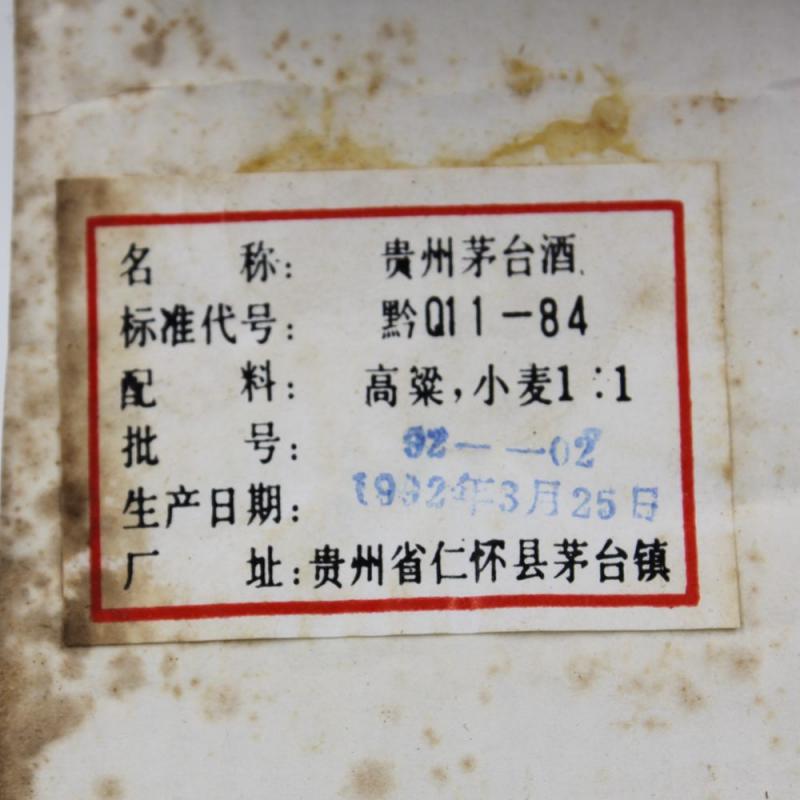 名称：贵州茅台酒
标准代号：黔Q11－84
配料：高粱，小麦1：1
批号：92－－02
生产日期：1992年3月25日
厂址：贵州省仁怀县茅台镇